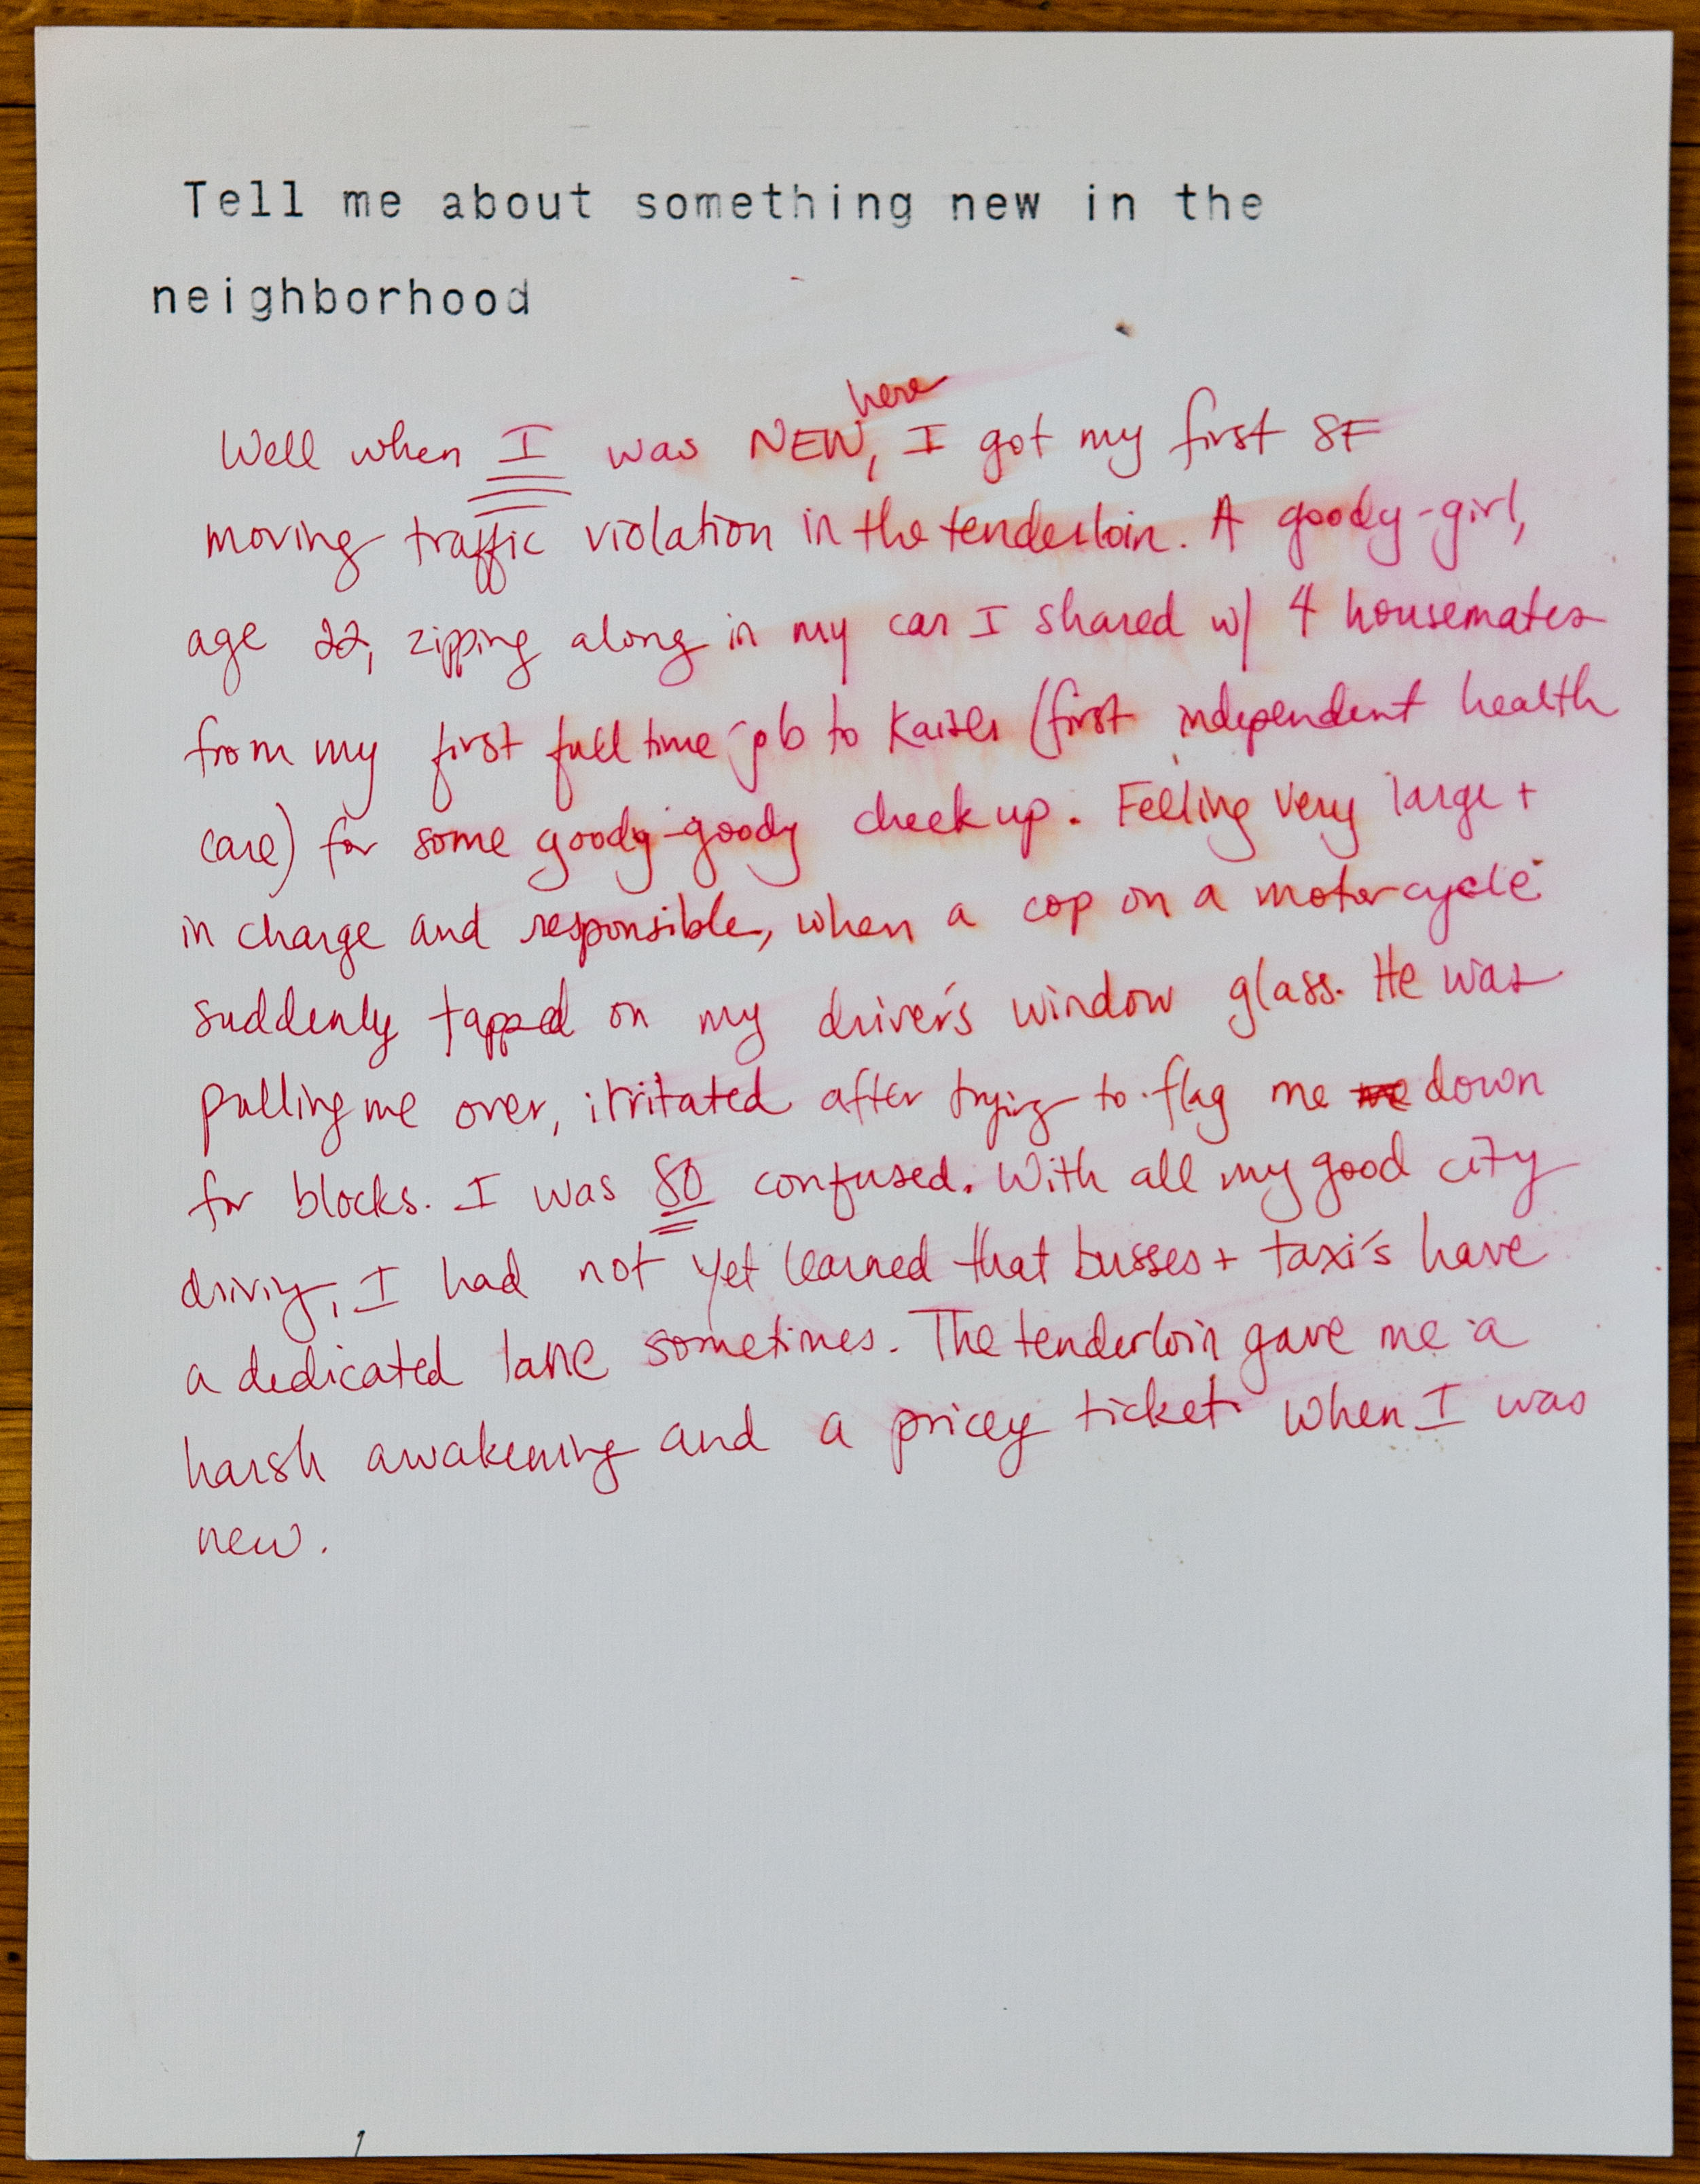 Tell me about something new in the
neighborhood
here
Well when I was NEW, I got my first SF
moving traffic violation in the tenderloin. A goody-girl,
age 22, zipping along in my car I shared w/ 4 housemates
from my first full time job to Kaiser (first independent health
care) for some goody-goody checkup. Feeling very large +
in charge and responsible, when a cop on a motorcycle
suddenly tapped on my driver's window glass. He was
pulling me over, irritated after trying to flag me me down
for blocks. I was SO confused. With all my good city
driving, I had not yet learned that busses + taxi's have
a dedicated lane sometimes. The tenderloin gave me a
harsh awakening and a pricey ticket when I was
new.